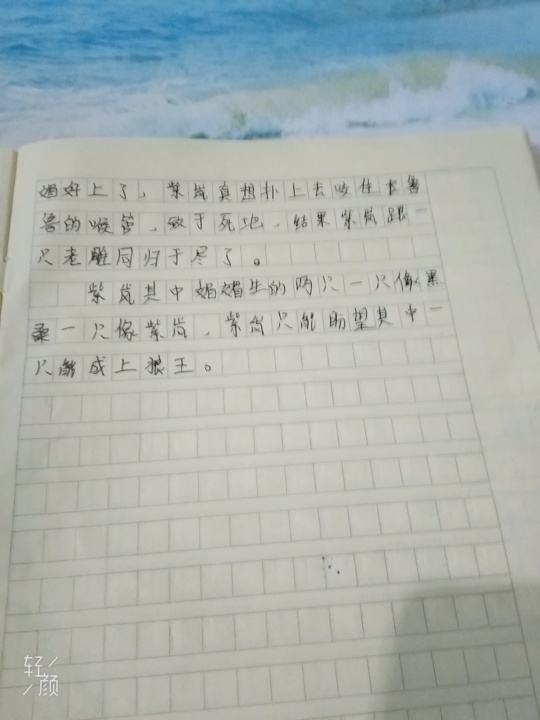 媚好上了，紫岚真想扑上去咬住卡鲁
鲁的喉管，致于死地，结果紫岚跟一
只老雕同归于尽了。
紫岚其中媚媚生的两只一只像黑
桑一只像紫岚，紫岚只能盼望其中一
只能成上狼王。
轻
颜